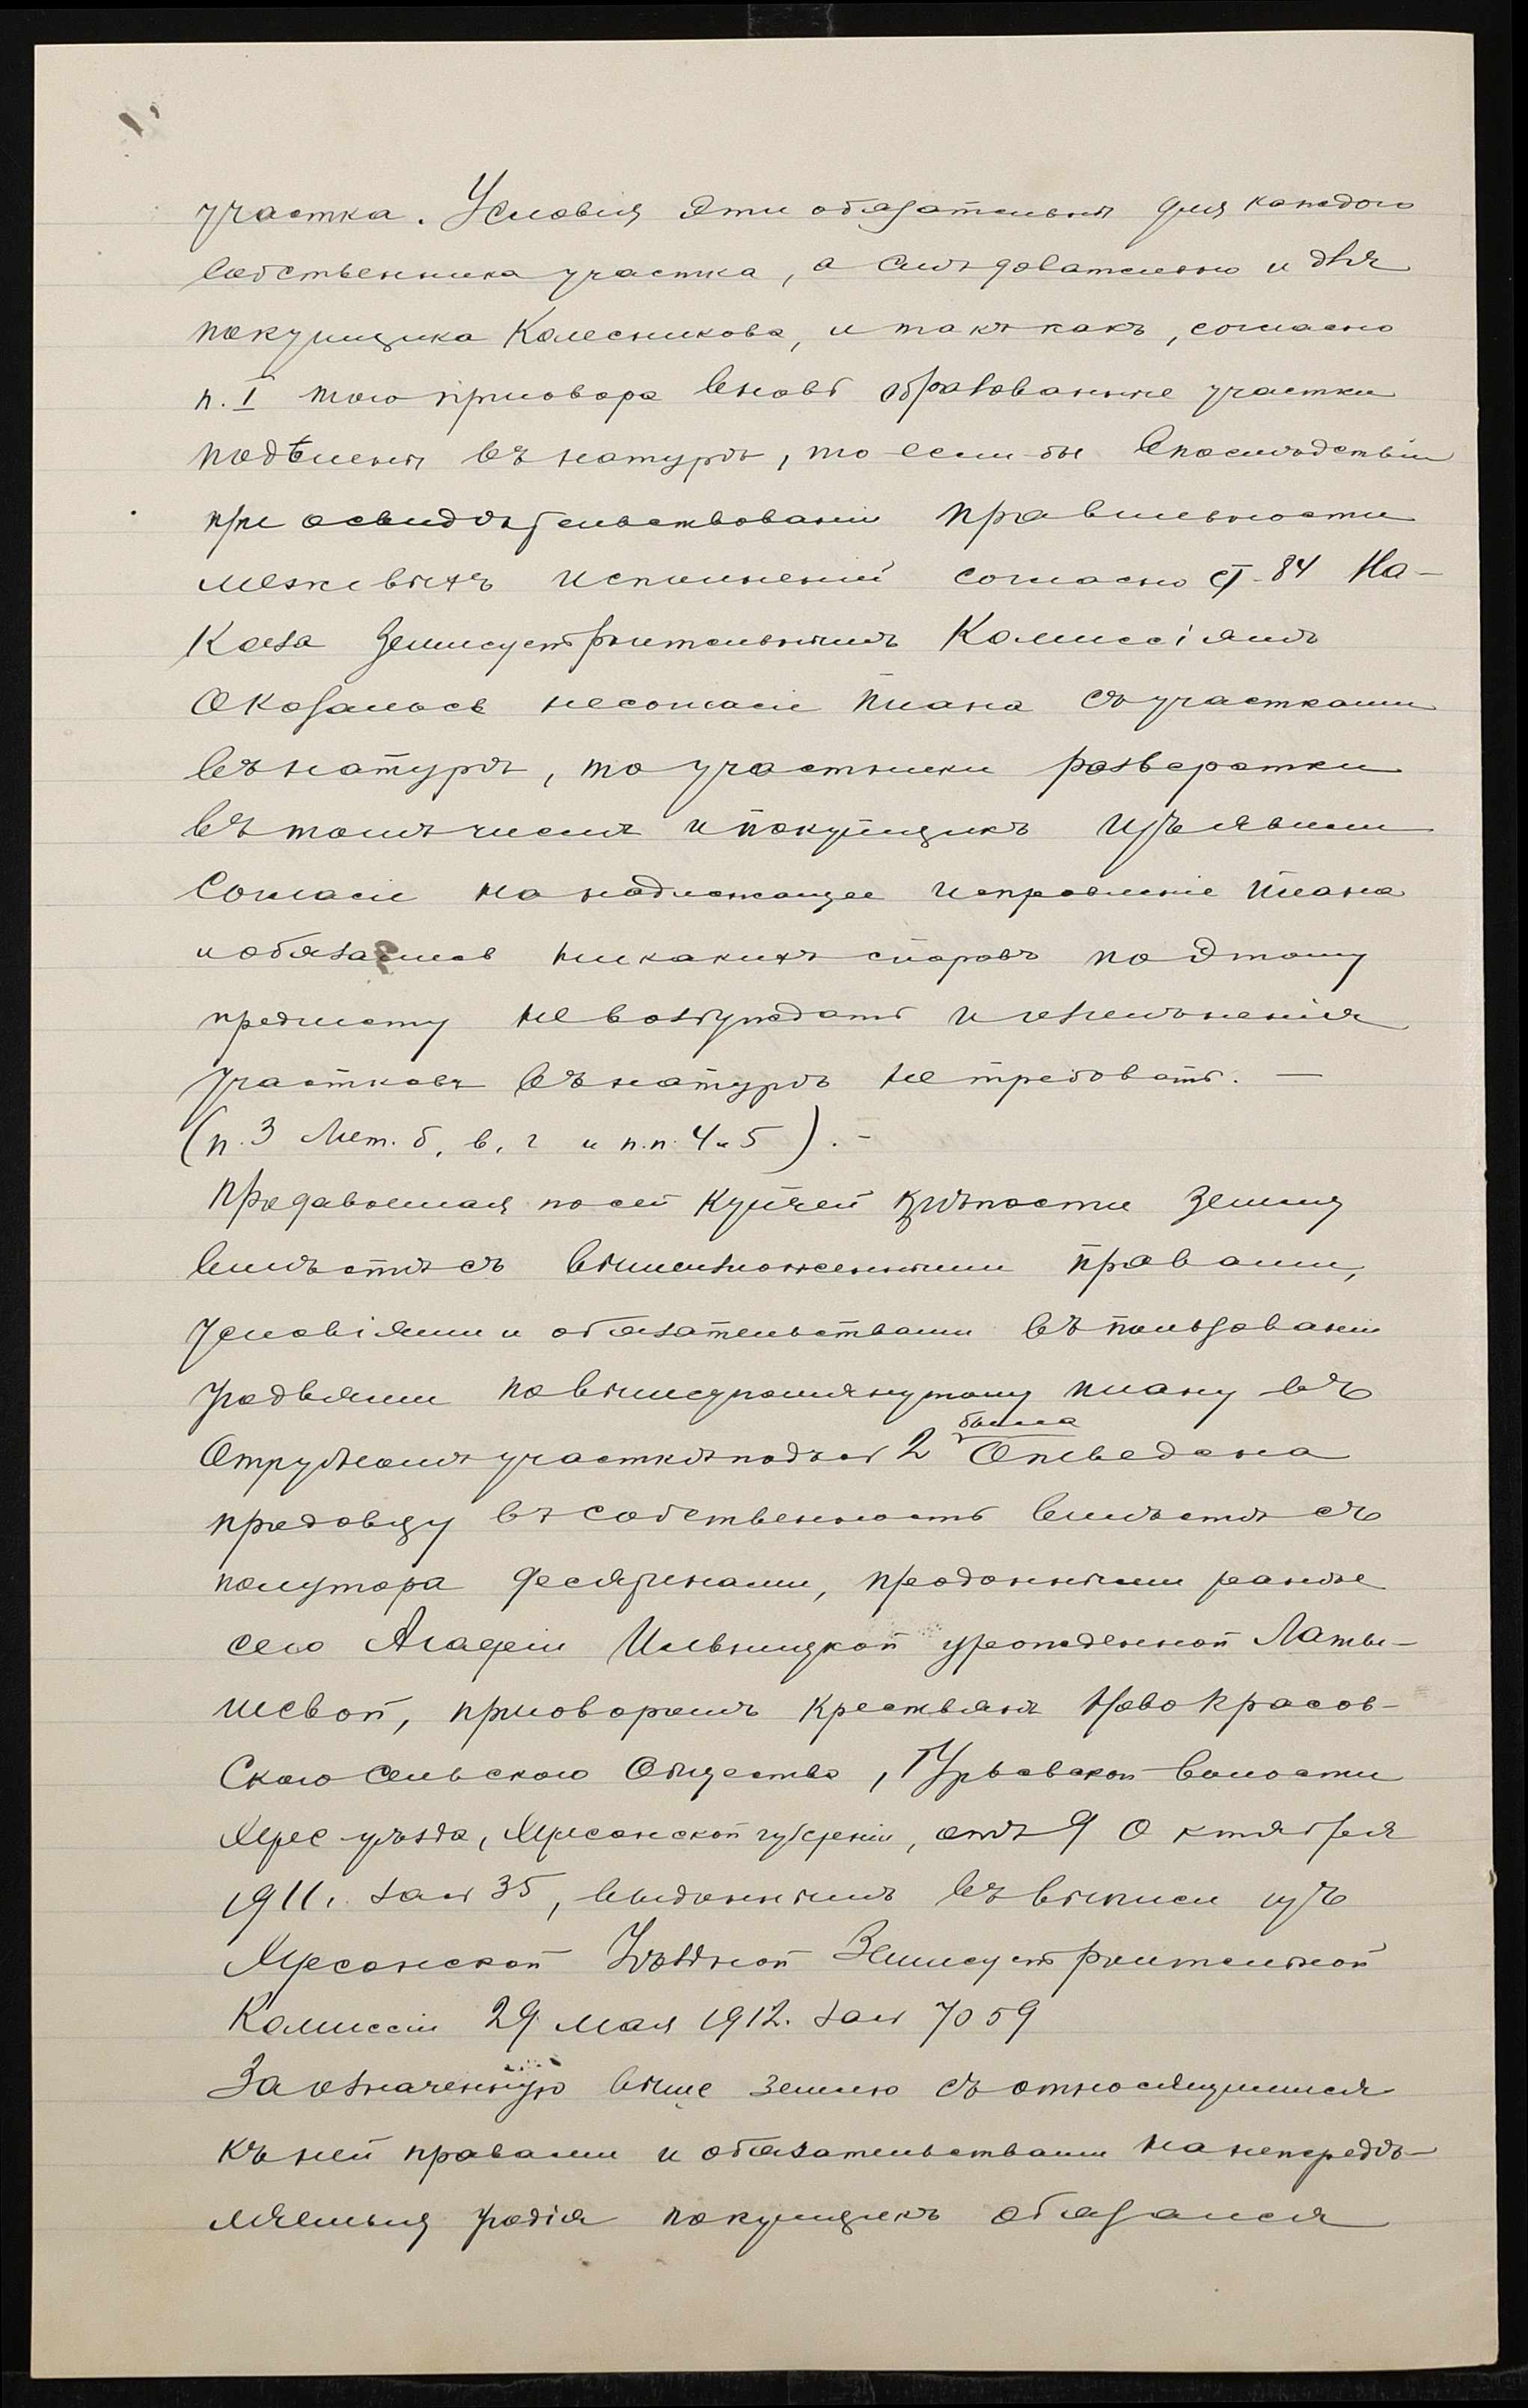 участка. Условія эти обязательны для каждаго
собственника участка, а слѣдовательно и для
покупщика Колесникова, и такъ какъ, согласно
п. I того приговора вновь образованные участки
подѣлены въ натурѣ, то если-бы впослѣдствіи
при освидѣтельствованіи правильности
межевыхъ исполненій согласно ст. 84 На-
каза Землеустроительнымъ Комиссіямъ
оказалось несогласіе плана съ участками
въ натурѣ, то участники разверстки
въ томъ числѣ и покупщикъ изъявили
согласіе на надлежащее исправленіе плана
и обязались никакихъ споровъ по этому
предмету не возбуждать и измѣненія
участковъ въ натурѣ не требовать. —
(п. 3 Лит. б, в, г и п.п. 4 и 5). —
Продаваемая по сей купчей крѣпости земля
вмѣстѣ съ вышеизложенными правами,
условіями и обязательствами въ пользованіи
угодьями по вышеупомянутому плану въ
отрубномъ участкѣ подъ № 2 была отведена
продавцу въ собственность вмѣстѣ съ
полутора десятинами, проданными ранѣе
сего Агафіи Ильницкой урожденной Латы-
шевой, приговоромъ крестьянъ Новокрасов-
скаго сельскаго Общества, Гурьевской волости
Херс уѣзда, Херсонской губерніи, отъ 9 Октября
1911 г. за № 35, выданнымъ въ выписи изъ
Херсонской Уѣздной Землеустроительной
Комиссіи 29 мая 1912. за № 7059
За означенную выше землю съ относящимися
къ ней правами и обязательствами на непередѣ-
ляемыя угодія покупщикъ обязался